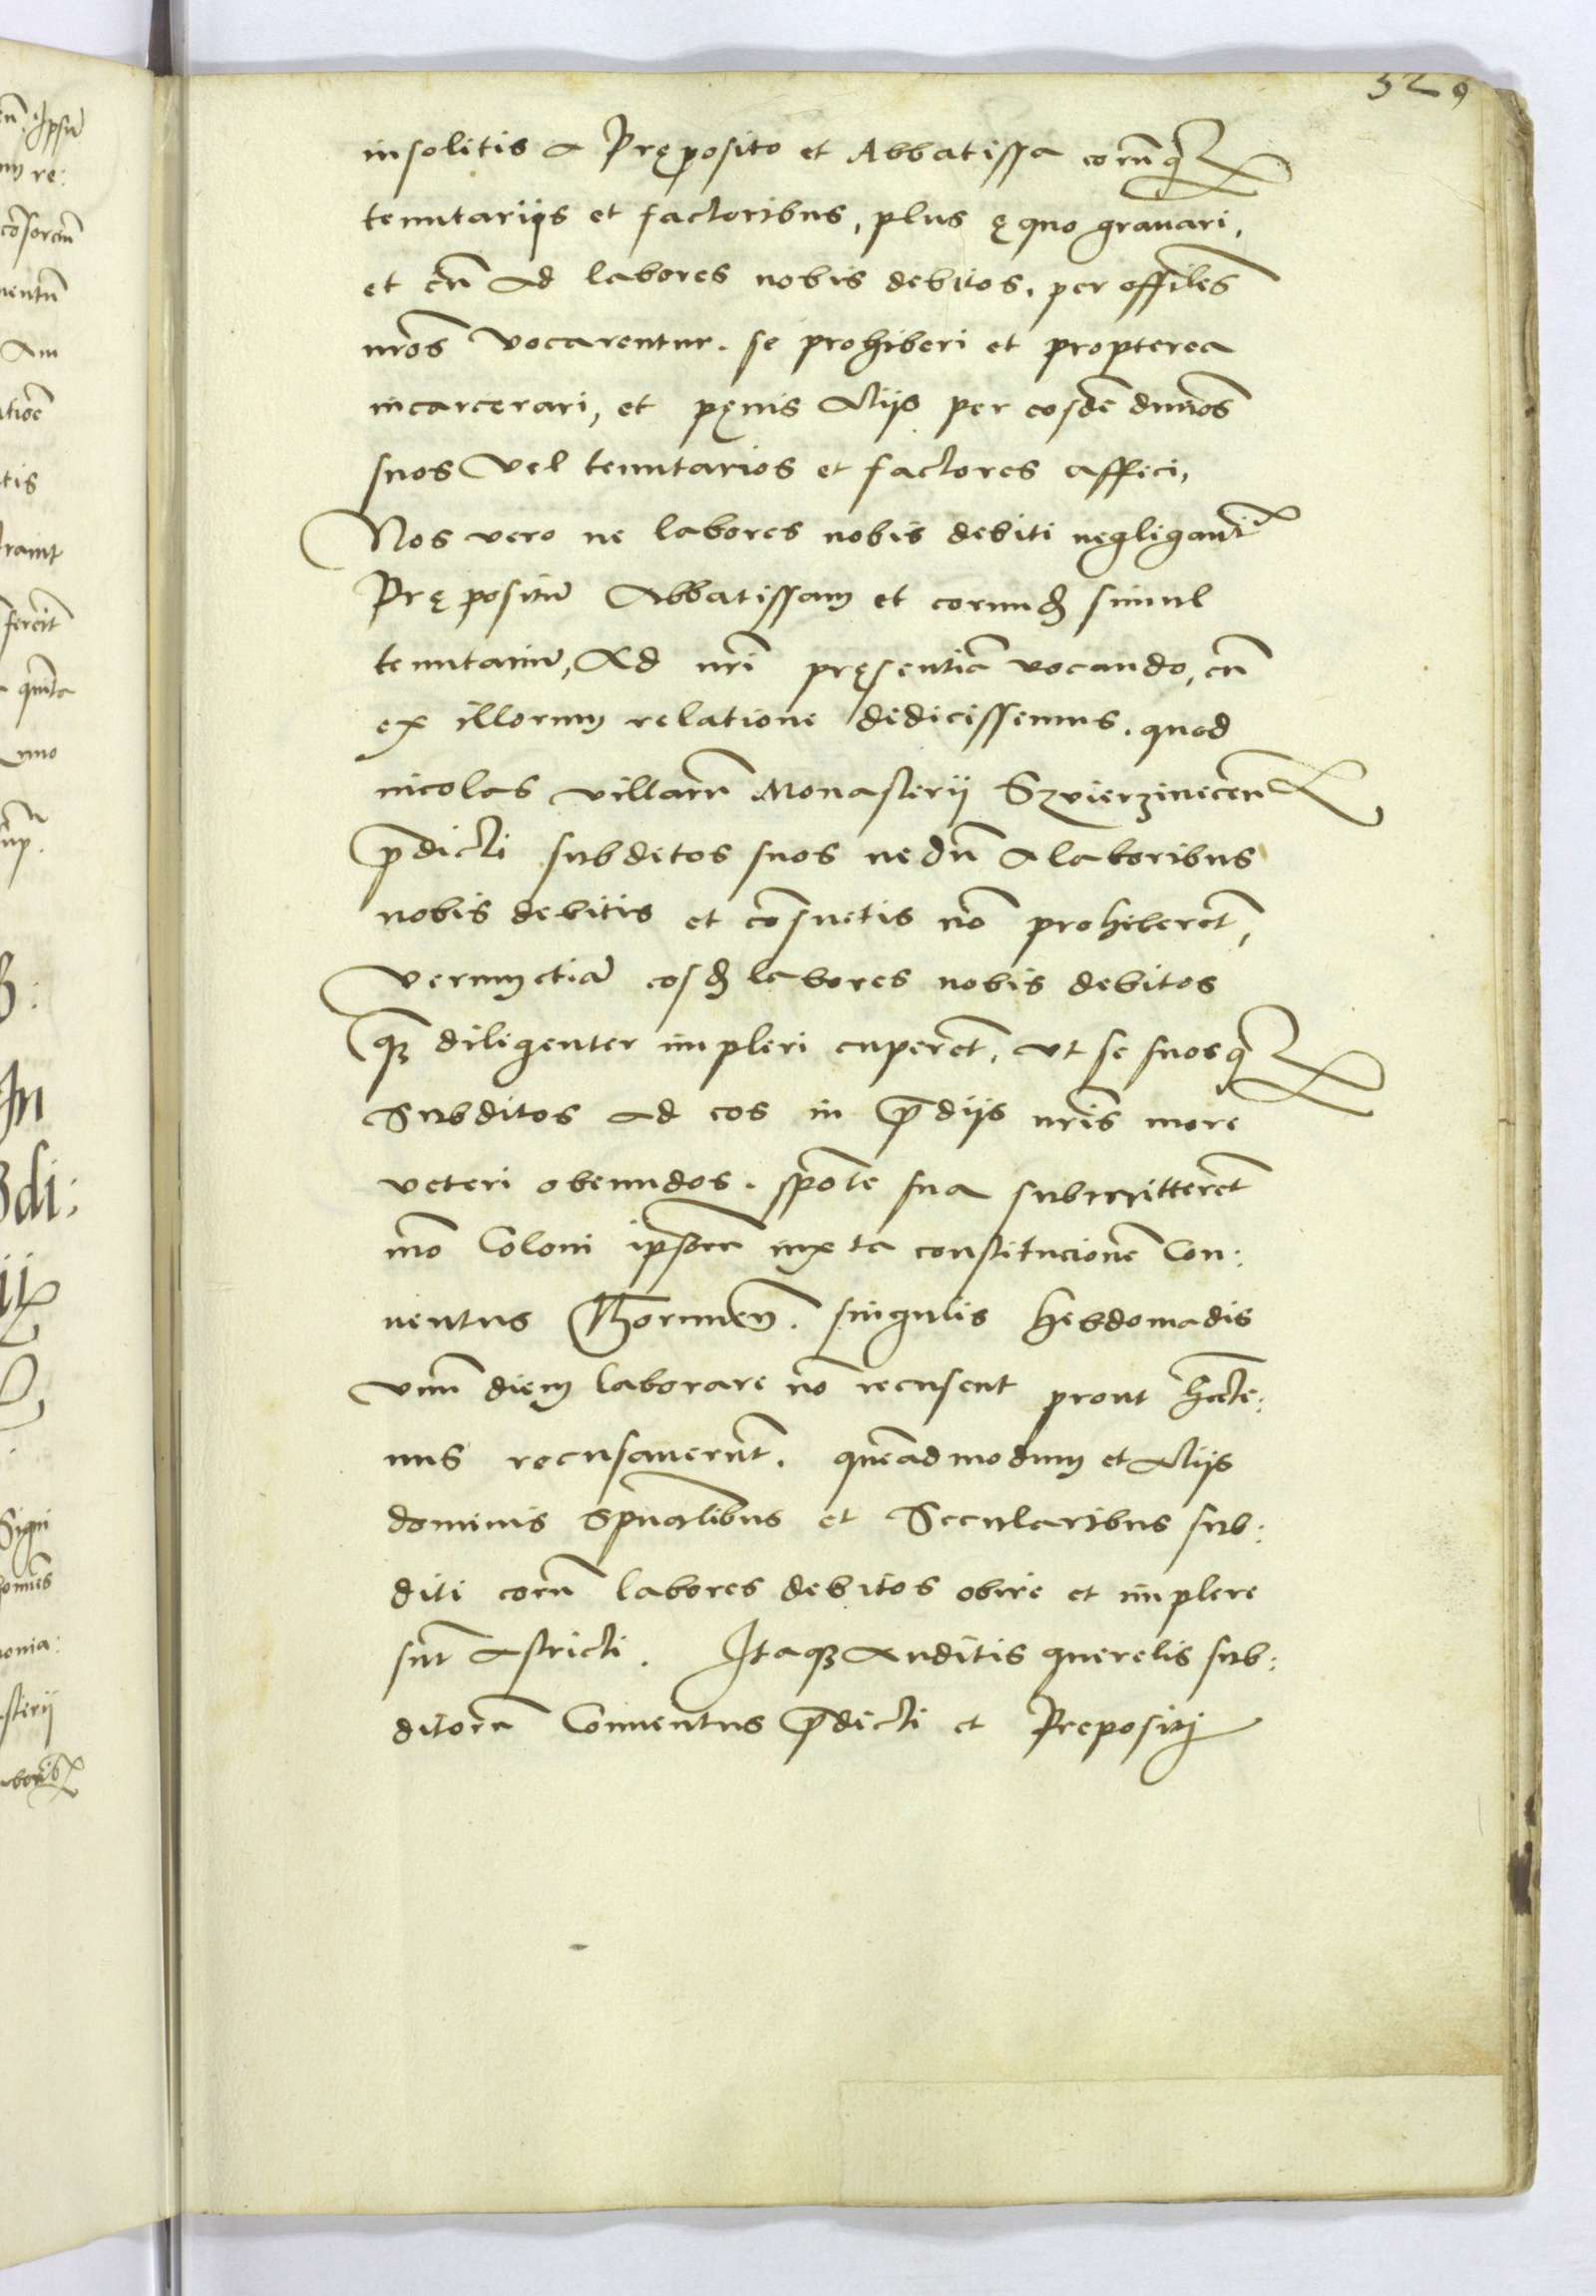 329
insolitis a Pręposito et Abbatissa eorūq
tenutarijs et factoribus, plus ęquo grauari,
et cū ad labores nobis debitos, per offiłes
nr̄os vocarentur. se prohiberi et propterea
incarcerari, et pęnis alijs per eosdē dn̄os
suos vel tenutarios et factores affici,
Nos vero ne labores nobis debiti negligant̄
Prępositū Abbatissam et eorundꝫ simul
tenutariū, Ad nr̄i pręsentiā vocando, cū
ex illorum relatione didicissemus. quod
incolas villarū Monasterij Szvierzinecen̄
p̄dicti subditos suos nedū a laboribus
nobis debitis et cōsuetis nō prohiberēt,
verumetiā eosdꝫ labores nobis debitos
q̄ꝫ diligenter impleri cuperēt, vt se suosq
Subditos ad eos in p̄dijs nr̄is more
veteri obeundos. spōte sua submitterēt
mō Coloni ipsorū iuxta constitucionē Con:
uentus Thorunen̄. singulis hebdomadis
vnū diem laborare nō recusent prout hacte:
nus recusauerūt. quēadmodum et alijs
dominis spūalibus et Secularibus sub:
diti eorū labores debitos obire et implere
sūt astricti. Itaqꝫ auditis querelis sub:
ditorū Conuentus p̄dicti et Prepositi